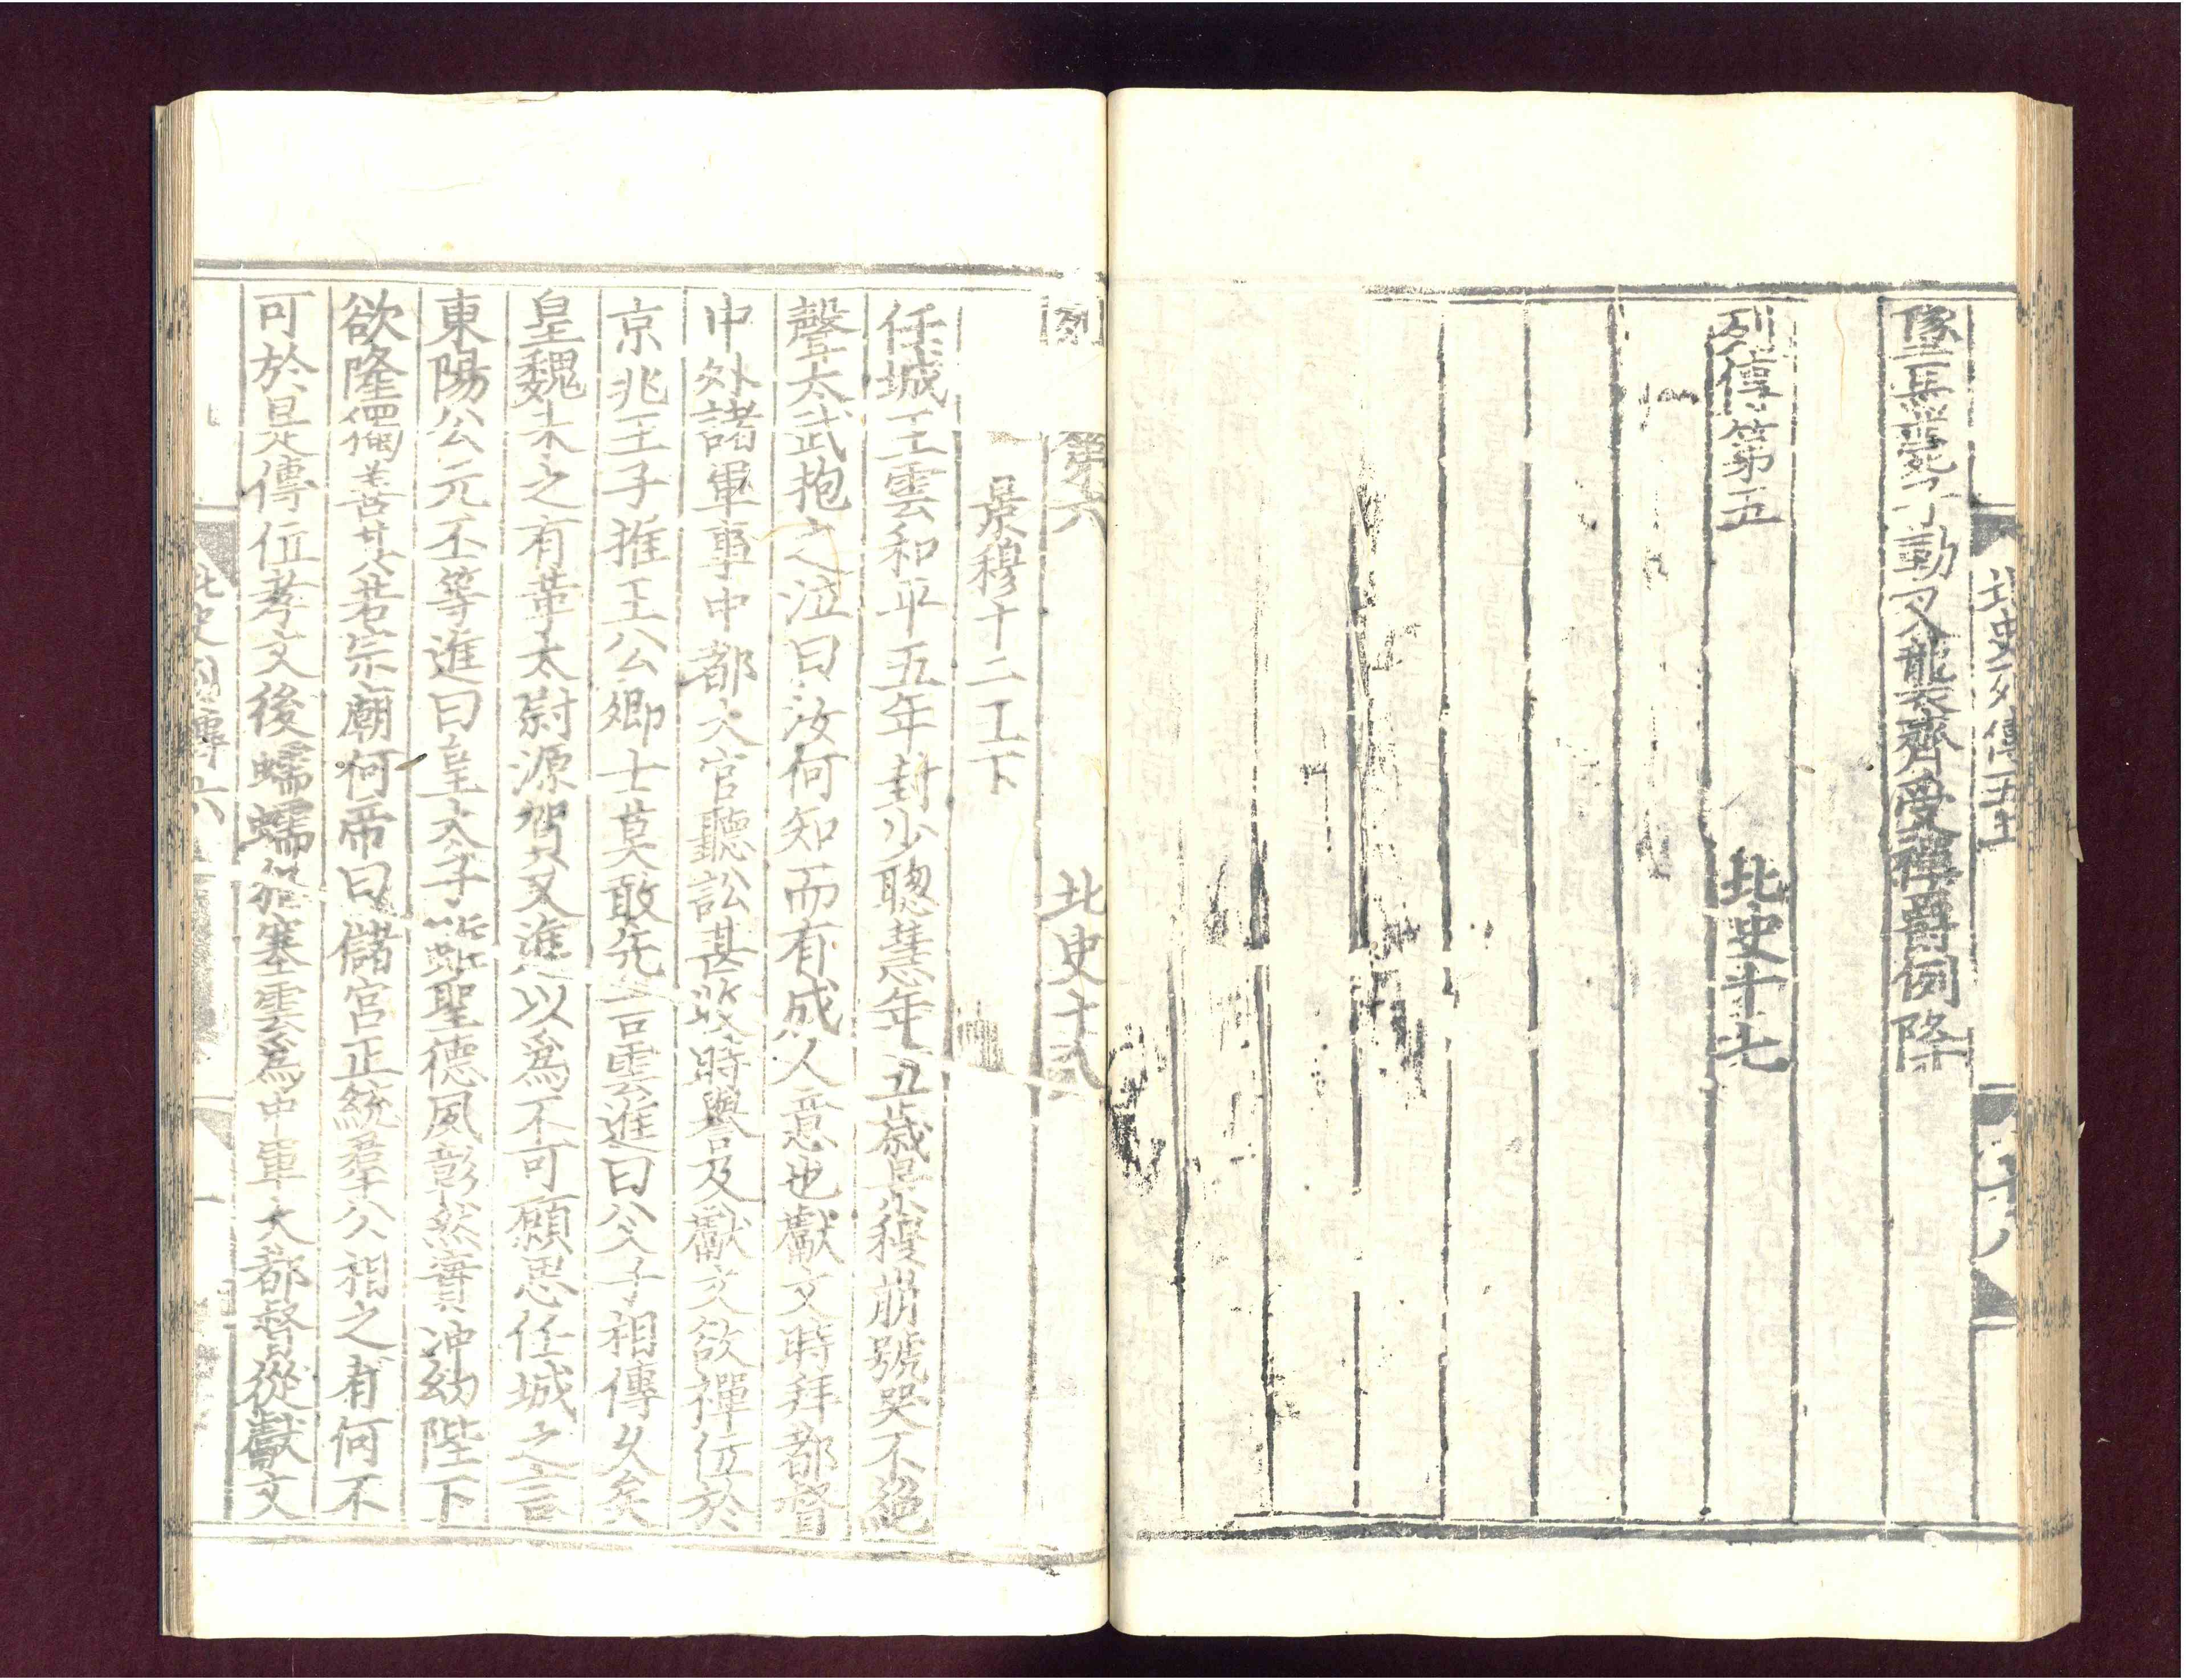 北史列傳五
隊云無不動又襲衣齊受禪爵例降
列傳第五
北史十七
列
第六
北史十八
景穆十二王下
任城王雲和平五年封少聰慧年五歲景穆崩號哭不絕
聲太武抱之泣曰汝何知而有成人意也獻文時拜都督
中外諸軍事中都大官聽訟甚收時譽及獻文欲禪位於
京兆王子推王公卿士莫敢先言雲進曰父子相傳久矣
皇魏未之有革太尉源賀又進以爲不可願思任城之言
東陽公元丕等進曰皇太子雖聖德夙彰然實冲幼陛下
欲隆獨善其若宗廟何帝曰儲宮正統羣公相之有何不
可於是傳位孝文後蠕蠕犯塞雲爲中軍大都督從獻文
北史列傳六